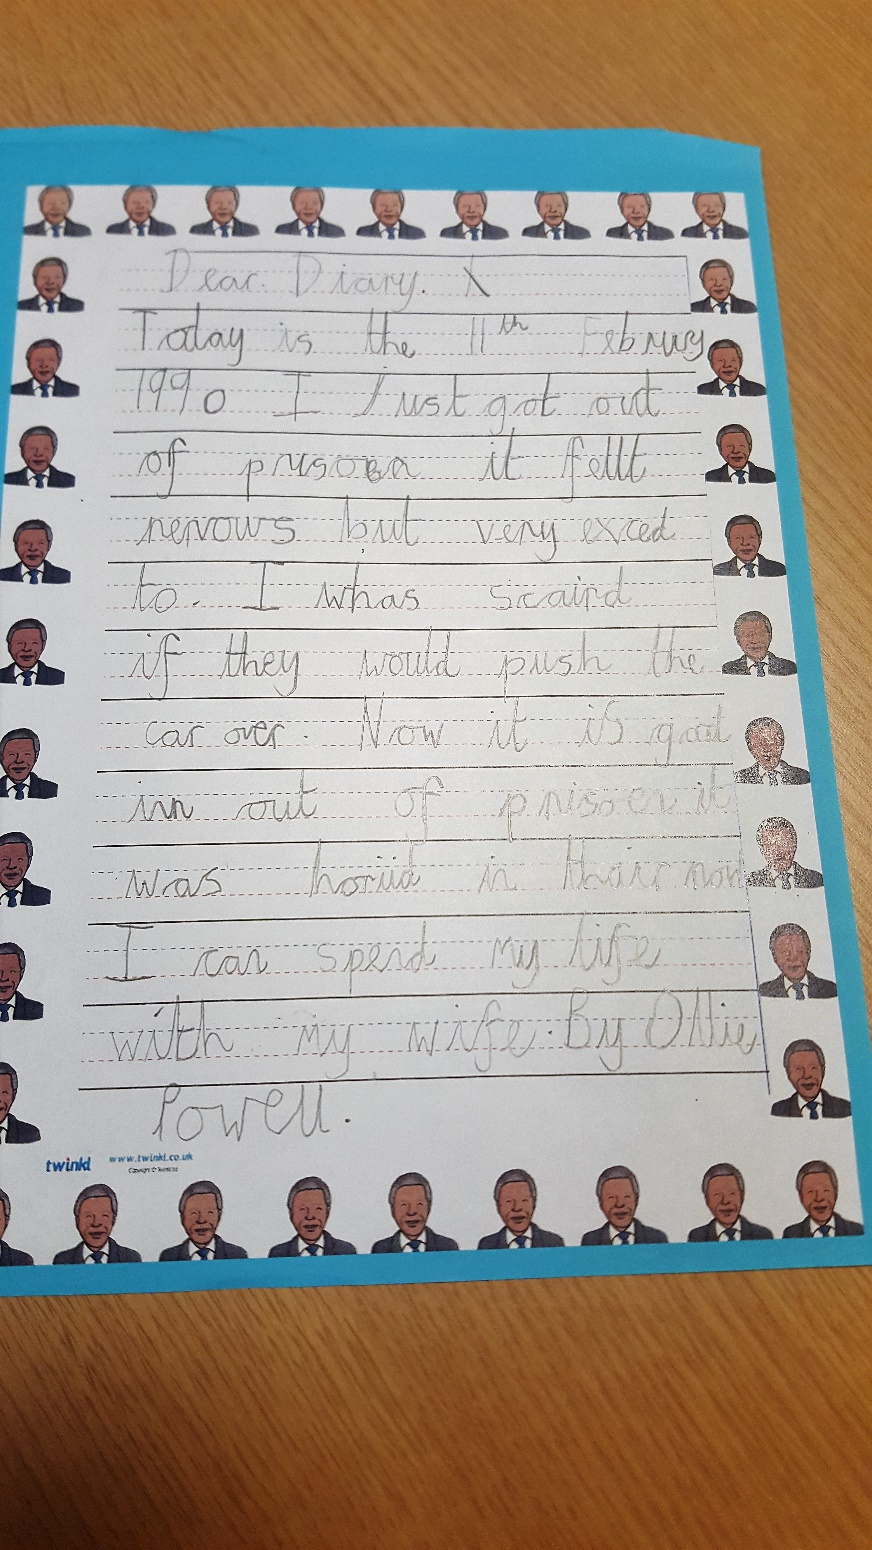 Dear. Diary. X
Today is the 11th Februy
1990 I Just got out
of prisoen it fellt
nervows but very exced
to. I whas scaird
if they would push the
car over. Now it is goot
inn out of prisoen it
was horiid in thair now
I can spend my life
with my wife. By Ollie
Powell.
twinkl www.twinkl.co.uk